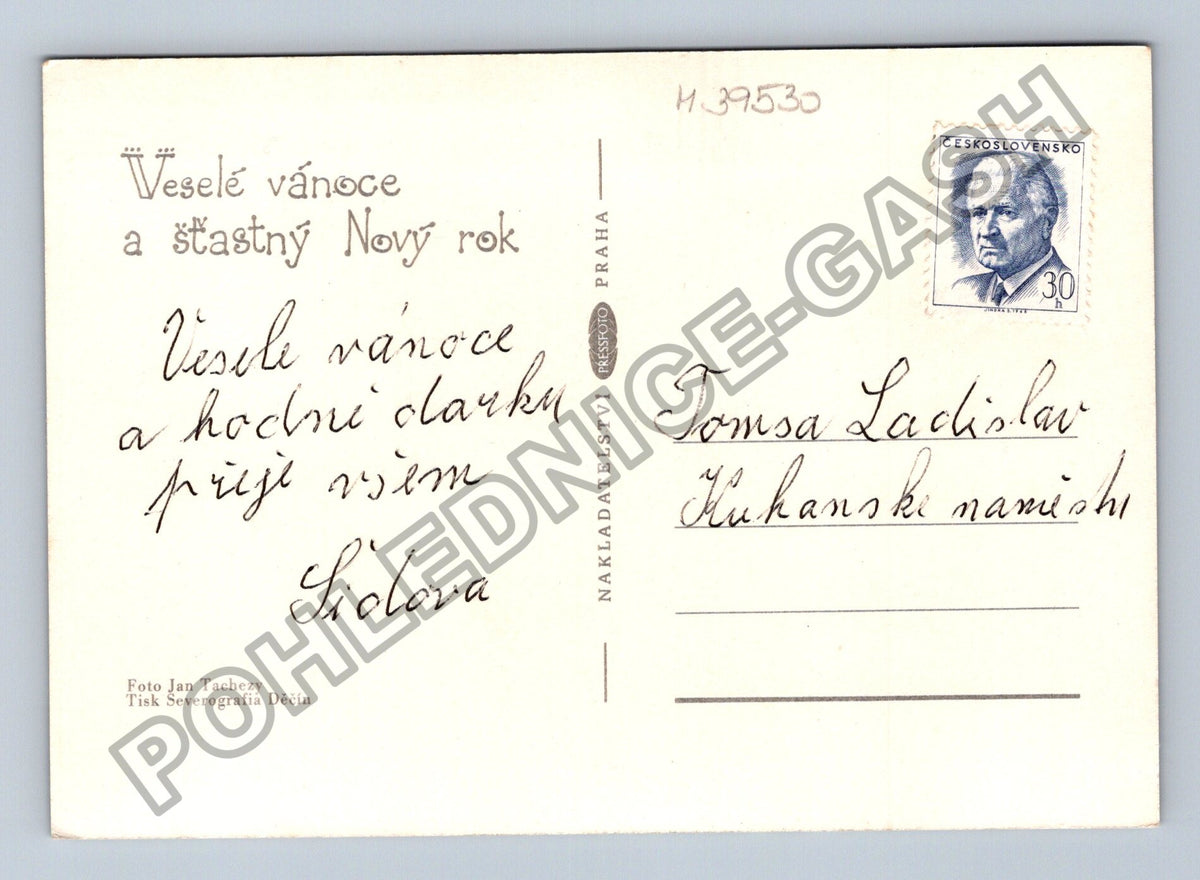 M 39530
Veselé vánoce
a šťastný Nový rok
Vesele vánoce
a hodně darku
přeje všem
Šidova
Foto Jan Tachezy
Tisk Severografia Děčín
NAKLADATELSTVÍ PRESSFOTO PRAHA
ČESKOSLOVENSKO
30
h
Tomsa Ladislav
naměsti
POHLEDNICE-GASH